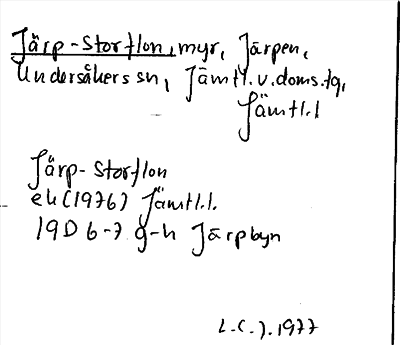 Järp-Storflon, myr, Järpen,
Undersåkers sn, Jämtl.v.doms.tg,
Jämtl.l
Järp-Storflon
ek (1976) Jämtl.l.
19D 6-7 g-h Järpbyn
L.C.J. 1977